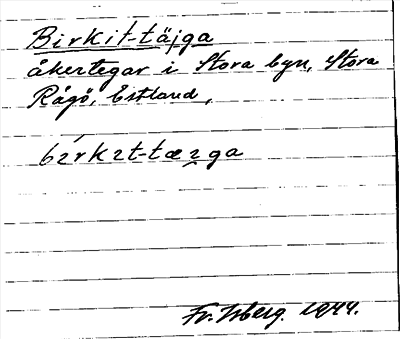 Birkit-täjga
åkertegar i Stora byn, Stora
Rågö, Estland,
bírkɪt-tæɪga
Fr. Isberg. 1944.